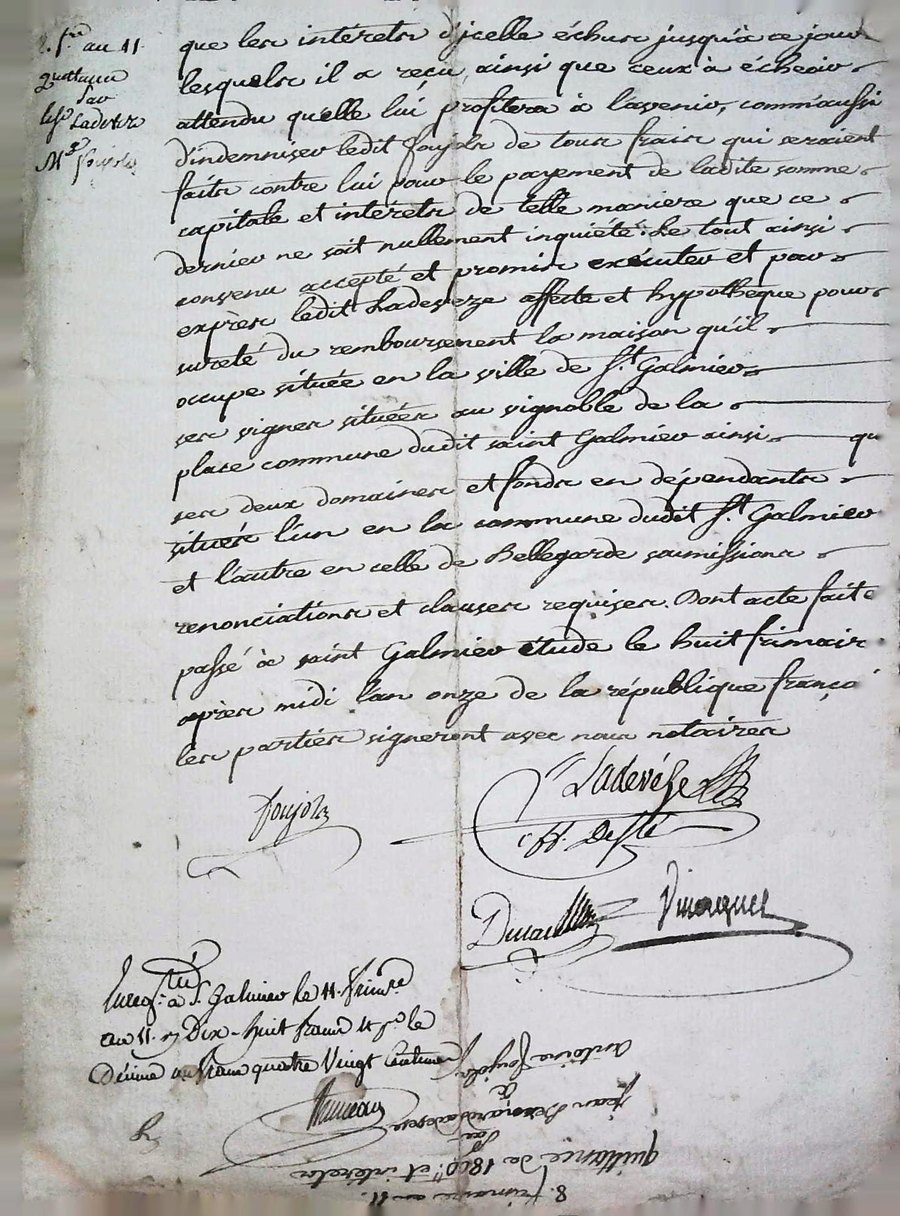 8. f.re an 11.
quittance
Par
Ladeveze
à
M.r foujols
que les intérets d'jcelle échus jusqu'à ce jour
lesquels il a reçu, ainsi que ceux à écheoir
attendu qu'elle lui profitera à l'avenir, comm'aussi
d'indemniser ledit foujols de tous frais qui seraient
faits contre lui pour le payement de ladite somme
capitale et intérets de telle maniere que ce
dernier ne soit nullement inquiété. Le tout ainsi
convenu accepté et promis exécuter et par
exprès ledit Ladeveze affecte et hypothèque pour
sureté du remboursement la maison qu'il
occupe située en la ville de S.t Galmier
ses vignes situées au vignoble de la
place commune dudit saint Galmier ainsi qu
ses deux domaines et fonds en dépendants
situés l'un en la commune dudit S.t Galmier
et l'autre en celle de Bellegarde soumissions
renonciations et clauses requises. Dont acte fait
passé à saint Galmier étude le huit frimair
après midi l'an onze de la république françai
les parties signeront avec nous notaires
foujols
Ladevéze
Dupuy
Enreg.tré à S.t Galmier le 11. frim.re
an 11. Dix-huit francs 4 f.r le
Décime un franc quatre Vingt Centimes
Antoine foujols
à
Jean Bernard Ladeveze
Par
quittance de 1800.tt et intérets
8. frimaire an 11.